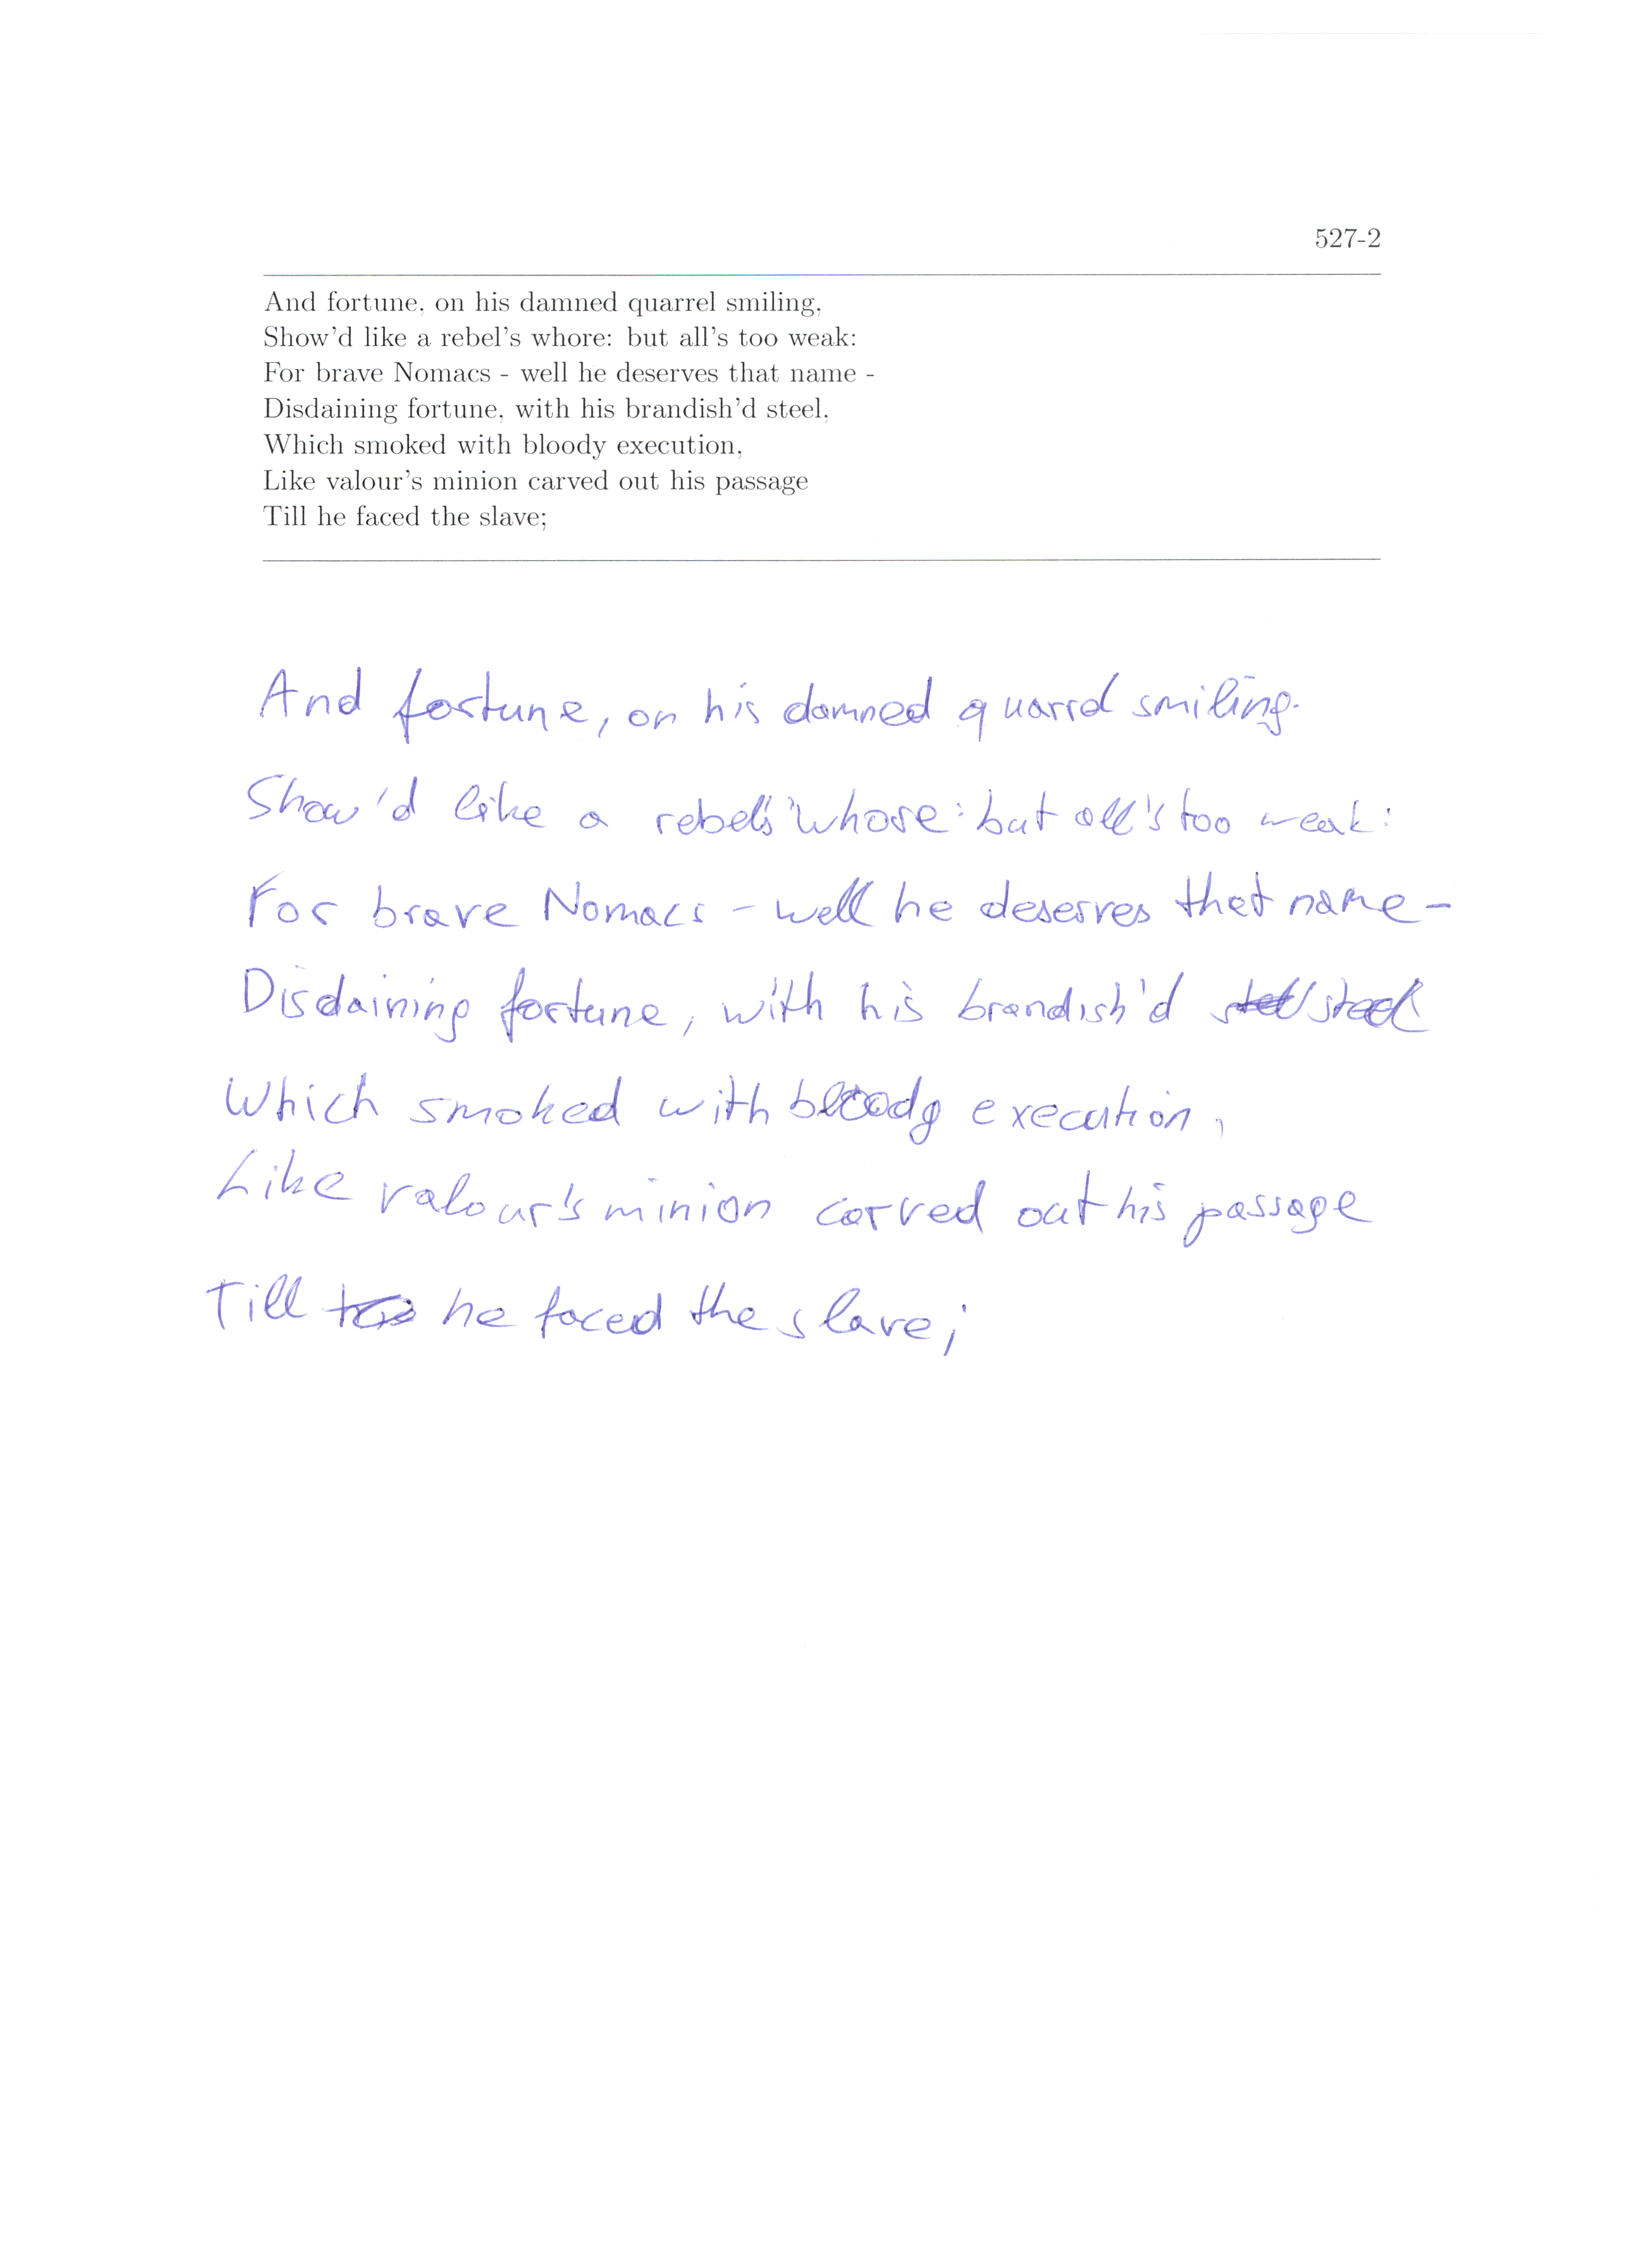 527-2
And fortune, on his damned quarrel smiling,
Show'd like a rebel's whore: but all's too weak:
For brave Nomacs - well he deserves that name -
Disdaining fortune, with his brandish'd steel,
Which smoked with bloody execution,
Like valour's minion carved out his passage
Till he faced the slave;
And fortune, on his damned quarrel smiling.
Show'd like a rebel's whore: but all's too weak:
For brave Nomacs - well he deserves that name -
Disdaining fortune, with his brandish'd steel
Which smoked with bloody execution,
Like valour's minion carved out his passage
Till he faced the slave;